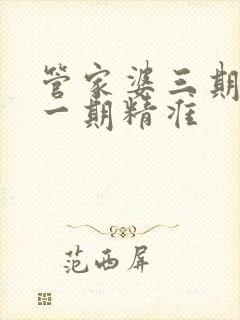 管家婆三期
一期精准
范西屏